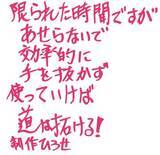 限られた時間ですが
あせらないで
効率的に
手を抜かず
使っていけば
道は拓ける!
制作ひろせ